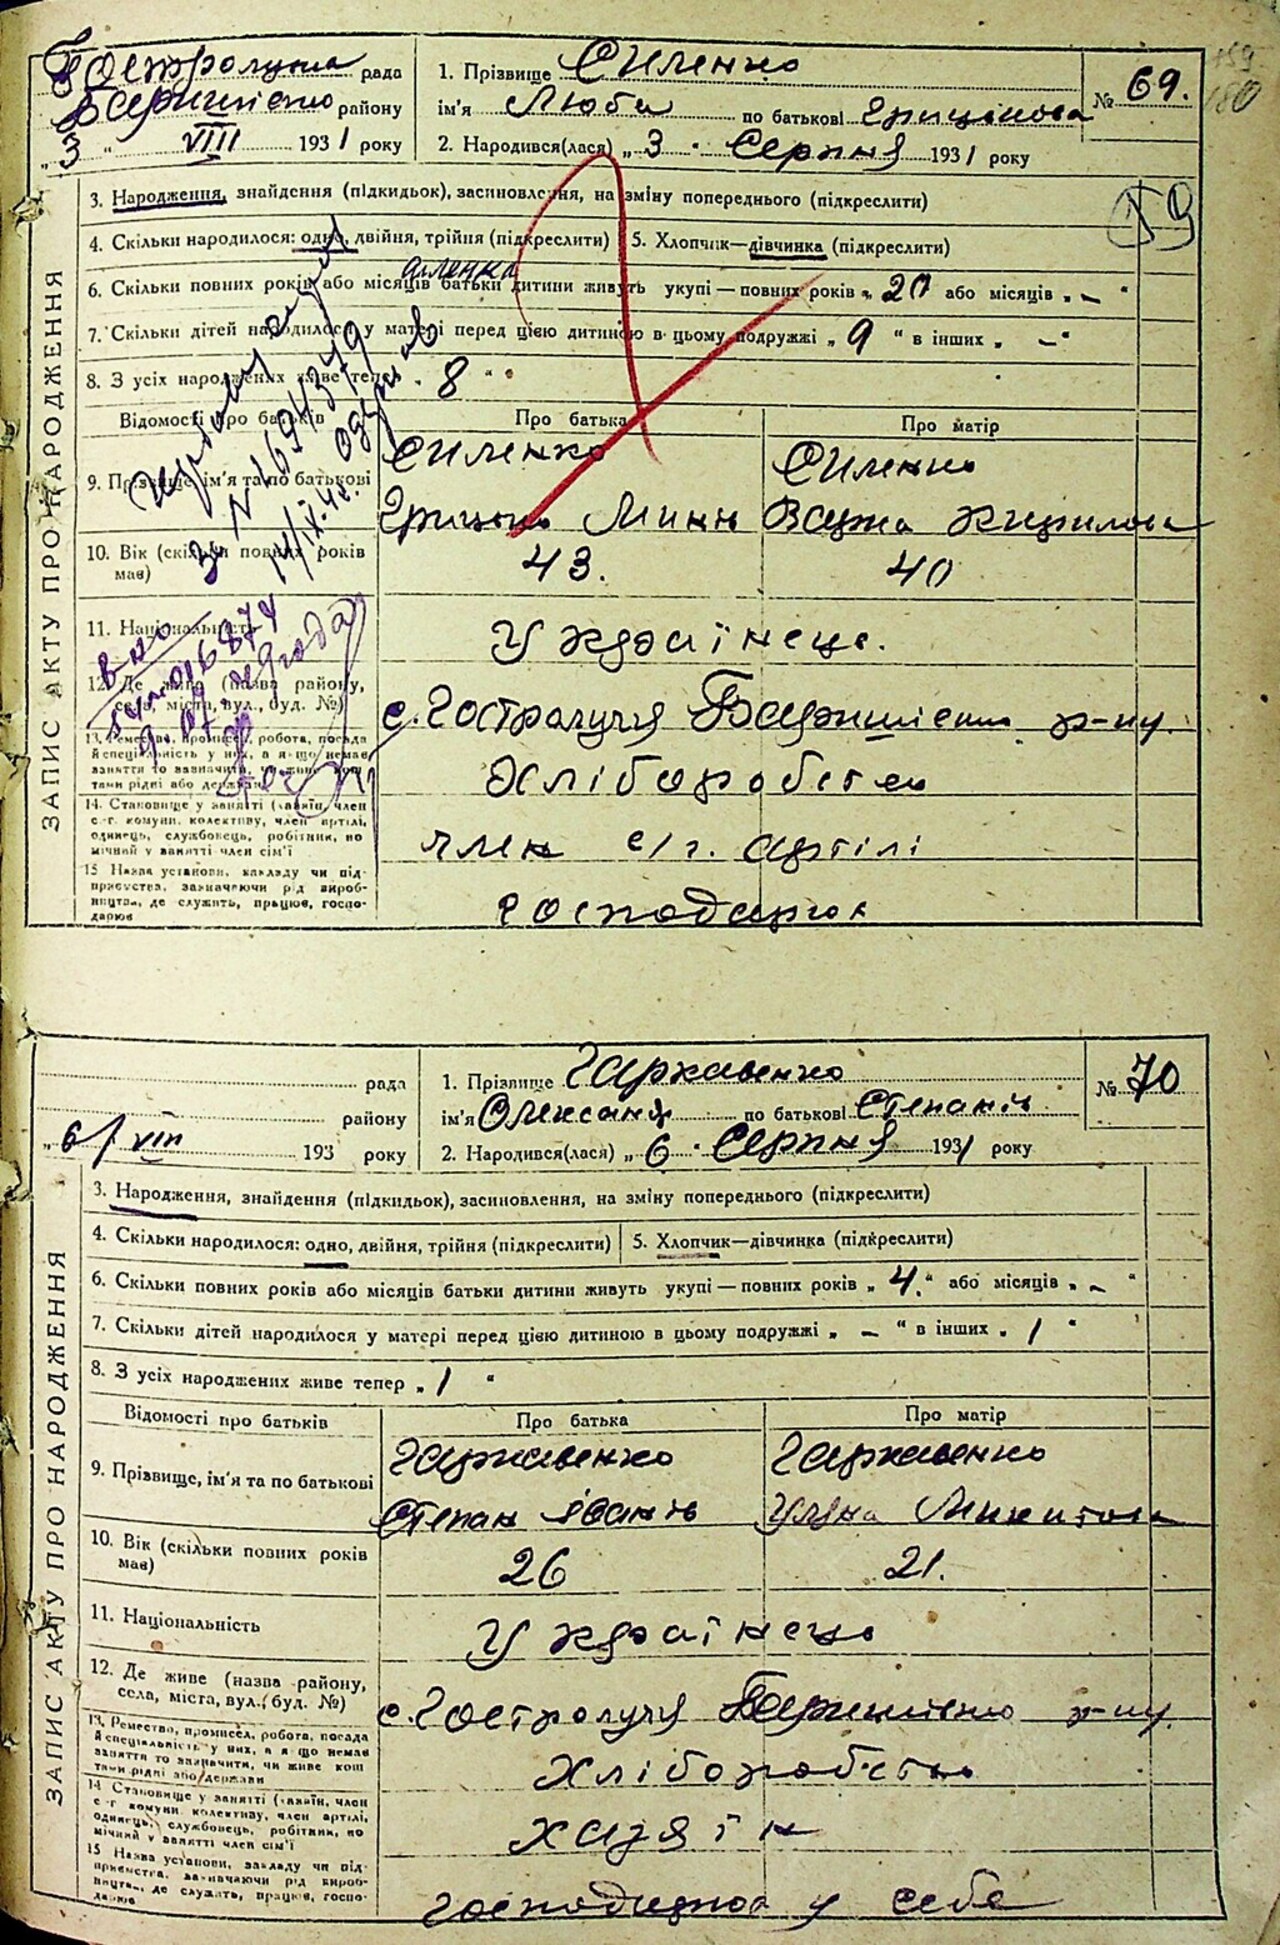 159
180
Гостролуцька рада
Баришівсько району
„3“ VIII 1931 року
1. Прізвище Силенко
ім'я Люба по батькові Грицькова
№ 69.
2. Народився(лася) „3“ Серпня 1931 року
ЗАПИС АКТУ ПРО НАРОДЖЕННЯ
3. Народження, знайдення (підкидьок), засиновлення, на зміну попереднього (підкреслити)
4. Скільки народилося: одно, двійня, трійня (підкреслити) 5. Хлопчик—дівчинка (підкреслити)
6. Скільки повних років або місяців батьки дитини живуть укупі — повних років „20 або місяців „–“
7. Скільки дітей народилося у матері перед цією дитиною в цьому подружжі „9“ в інших „–“
8. З усіх народжених живе тепер „8“
Відомості про батьків Про батька Про матір
9. Прізвище, ім'я та по батькові
Силенко Силенко
Грицько Кирилова
10. Вік (скільки повних років має) 43. 40
11. Національність Українець.
12. Де живе (назва району, села, міста, вул., буд. №)
с. Гостролуччя Баришівсько р-ну.
13. Ремество, промисел, робота, посада й спеціяльність у них, а якщо немає заняття то зазначити, чи живе коштами рідні або держави
Хліборобство
14. Становище у занятті (хазяїн, член с.-г. комуни, колективу, член артілі, одинець, службовець, робітник, помічний у занятті член сім'ї
член с/г. артілі
15 Назва установи, закладу чи підприємства, зазначаючи рід виробництва, де служить, працює, господарює
господарює
№ 70
рада
району
„6/ VIII 193 року
1. Прізвище Гаркавенко
ім'я Олександ по батькові Степанів
2. Народився(лася) „6“ Серпня 1931 року
ЗАПИС АКТУ ПРО НАРОДЖЕННЯ
3. Народження, знайдення (підкидьок), засиновлення, на зміну попереднього (підкреслити)
4. Скільки народилося: одно, двійня, трійня (підкреслити) 5. Хлопчик—дівчинка (підкреслити)
6. Скільки повних років або місяців батьки дитини живуть укупі — повних років „4.“ або місяців „–“
7. Скільки дітей народилося у матері перед цією дитиною в цьому подружжі „–“ в інших „1“
8. З усіх народжених живе тепер „1“
Відомості про батьків Про батька Про матір
9. Прізвище, ім'я та по батькові
Гаркавенко Гаркавенко
Степан Іванів Уляна Микитова
10. Вік (скільки повних років має) 26 21.
11. Національність Українець
12. Де живе (назва району, села, міста, вул., буд. №)
с. Гостролуччя Баришівсько р-ну.
13. Ремество, промисел, робота, посада й спеціяльність у них, а якщо немає заняття то зазначити, чи живе коштами рідні або держави
Хліборобство
14 Становище у занятті (хазяїн, член с.-г. комуни, колективу, член артілі, одинець, службовець, робітник, помічний у занятті член сім'ї
хазяїн
15 Назва установи, закладу чи підприємства, зазначаючи рід виробництва, де служить, працює, господарює
господарює у себе